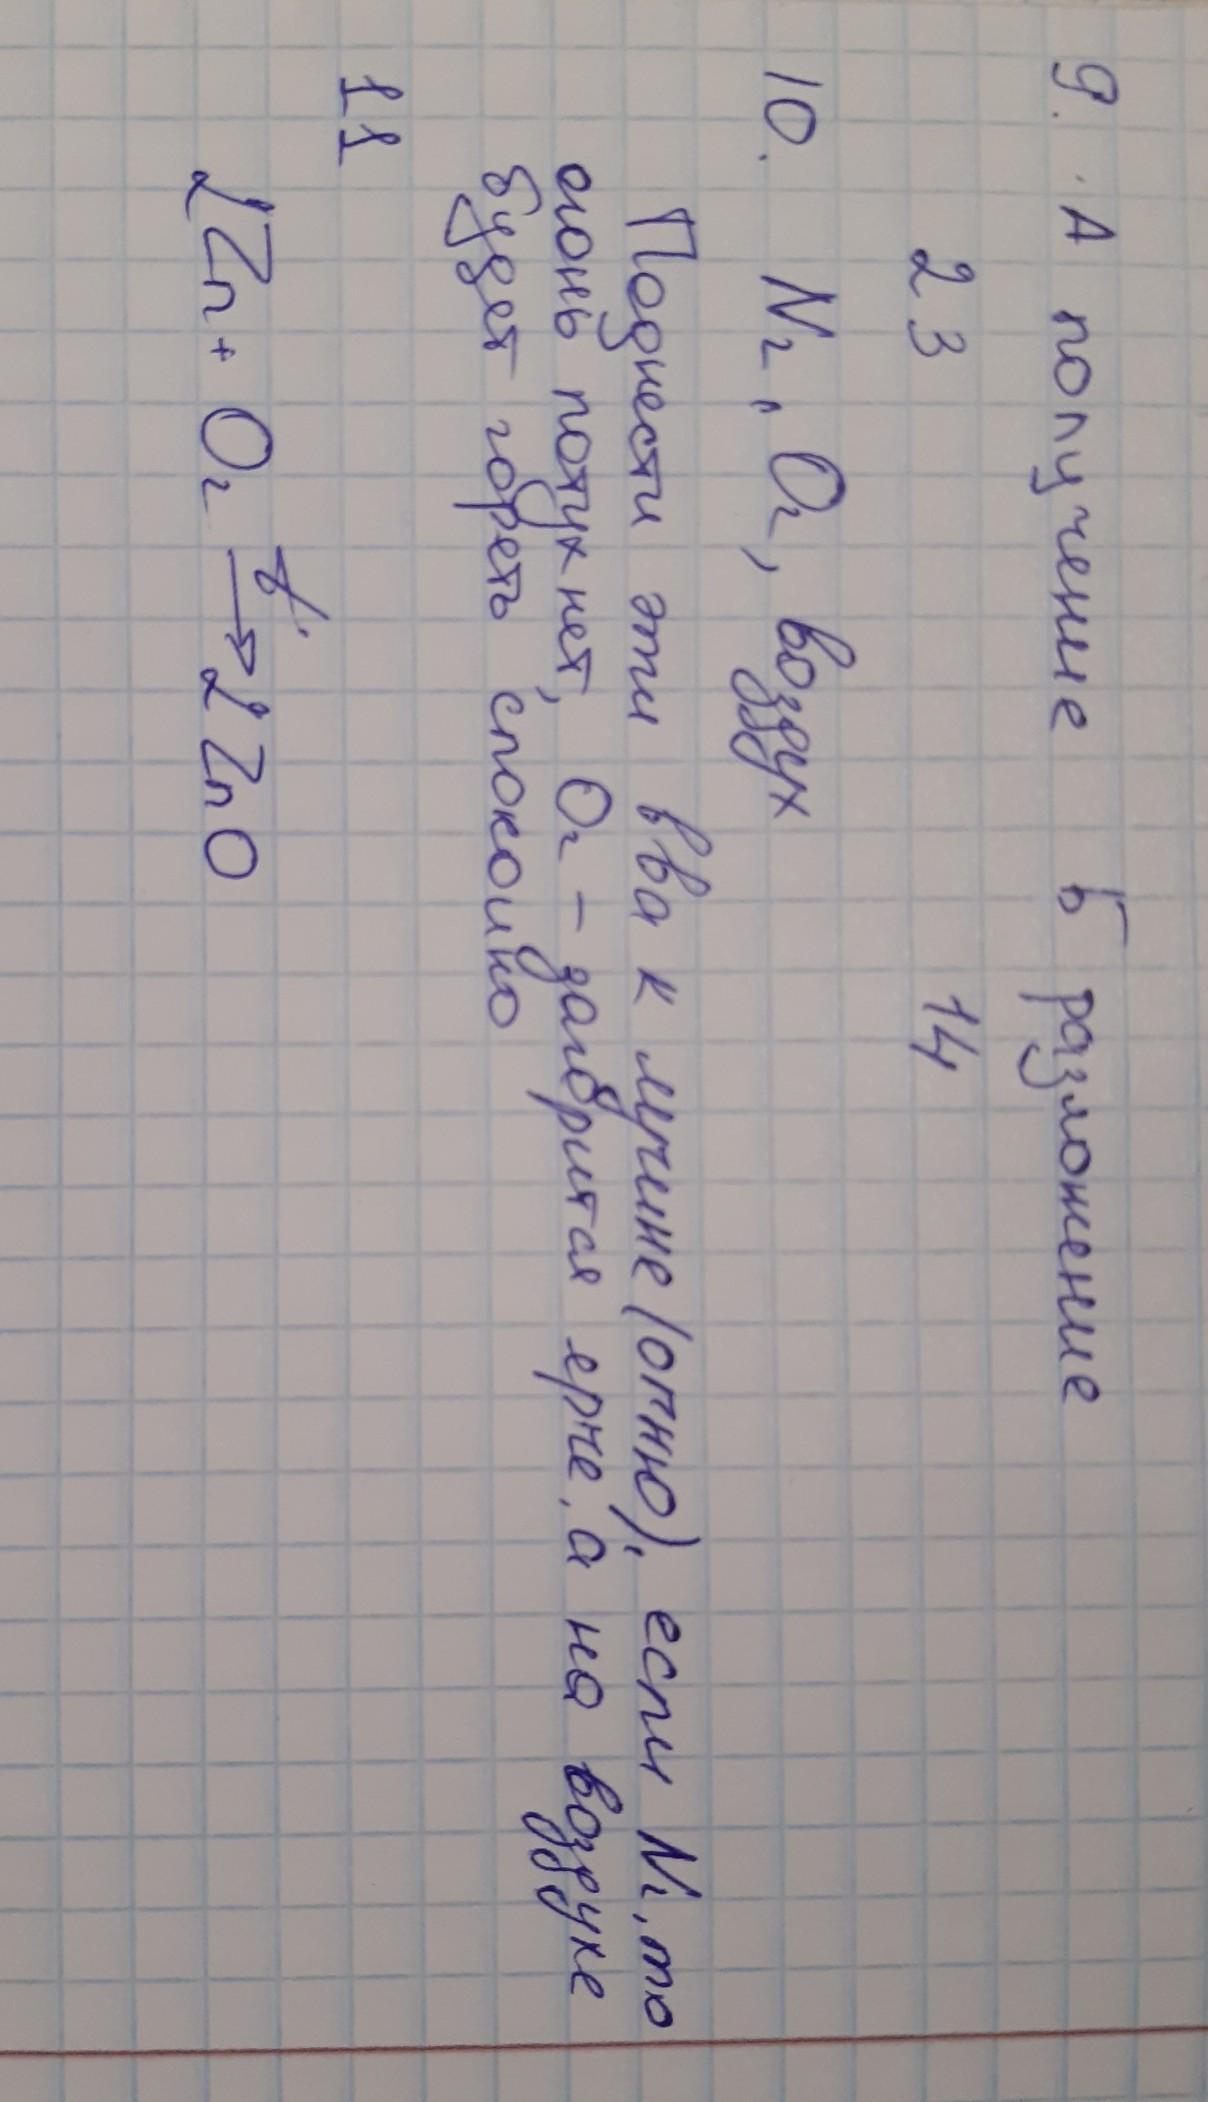 9. А получение Б разложение
2 3 14
10. N₂, O₂, воздух
Поднести эти вва к лучине (огню), если N₂, то
огонь потухнет, O₂ - загорится ерче, а на воздухе
будет гореть спокойно
11
2Zn + O₂ t° → 2ZnO